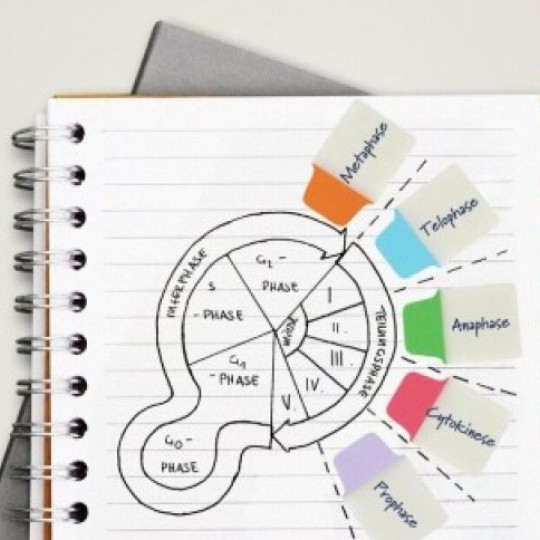 Metaphase
Telophase
Anaphase
Cytokinese
Prophase
INTERPHASE
G2-
PHASE
S
-PHASE
G1
-PHASE
G0-
PHASE
I
II.
III.
IV.
V.
TEILUNGSPHASE